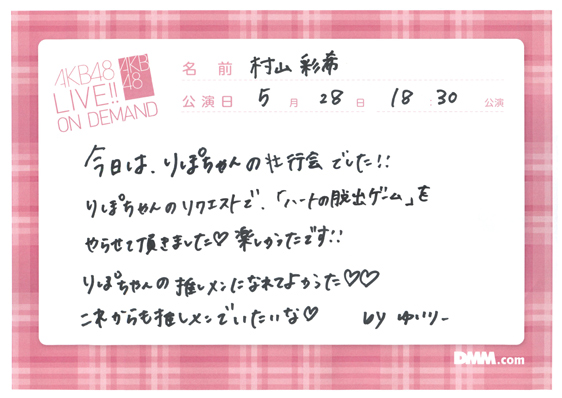 AKB48
LIVE!!
ON DEMAND
AKB
48
名前 村山彩希
公演日 5月28日 18:30公演
今日は、りしぽちゃんの壮行会でした!!
りしぽちゃんのリクエストで、「ハートの脱出ゲーム」を
やらせて頂きました♡楽しかったです!!
りしぽちゃんの推しメンになれてよかった♡♡
これからも推しメンでいたいな♡ by ゆいりー
DMM.com